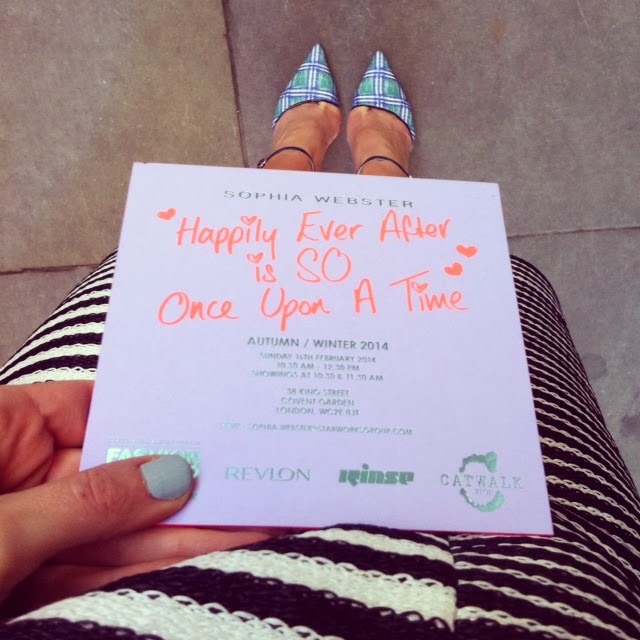 SOPHIA WEBSTER
Happily Ever After
is SO
Once Upon A Time
AUTUMN / WINTER 2014
SUNDAY 16TH FEBRUARY 2014
10.30 AM - 12.30 PM
SHOWINGS AT 10.30 & 11.30 AM
38 KING STREET
COVENT GARDEN
LONDON, WC2E 8JT
RSVP - SOPHIA.WEBSTER@STARWORKSGROUP.COM
FASHION
REVLON
rinse
CATWALK